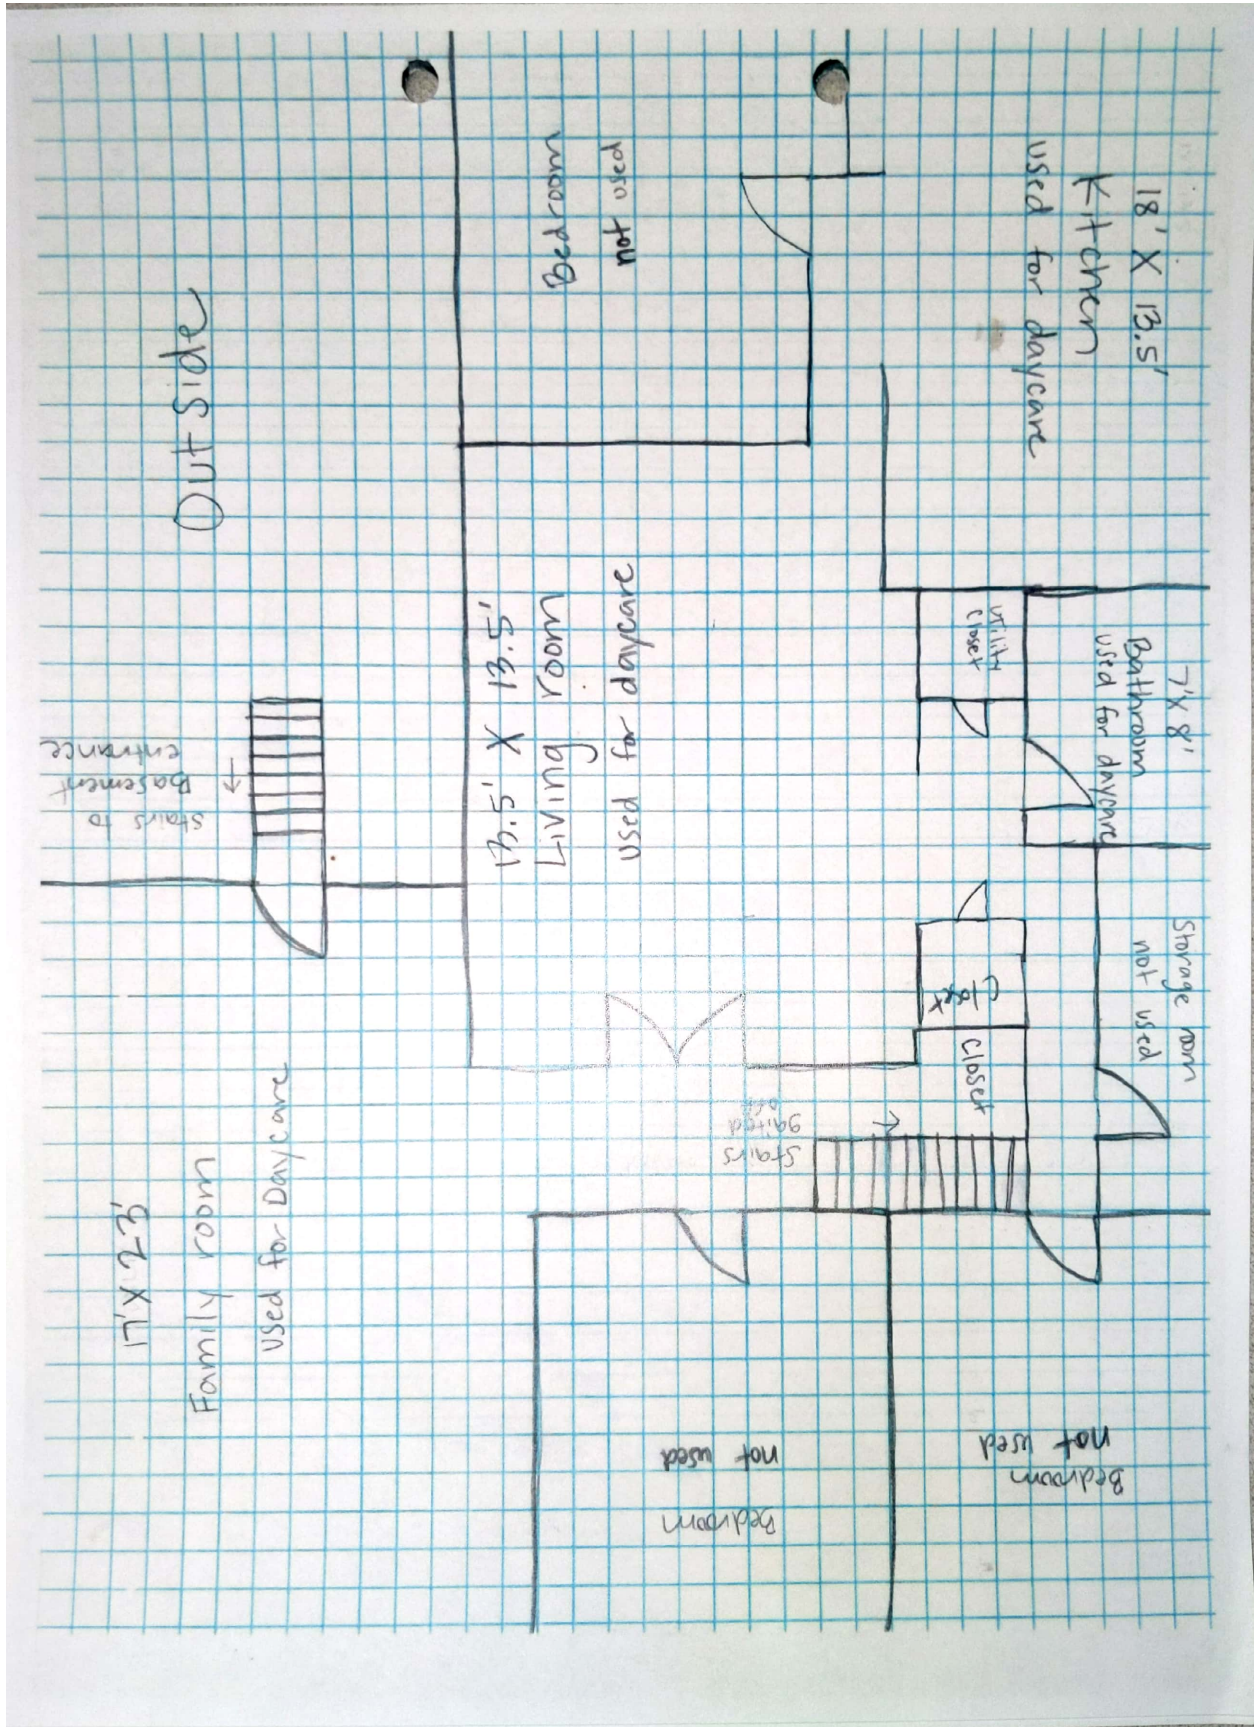 18' X 13.5'
Kitchen
used for daycare
Bedroom
not used
Outside
utility
closet
7' X 8'
Bathroom
used for daycare
13.5' X 13.5'
Living room
used for daycare
stairs to
Basement
entrance
Storage room
not used
Closet
Closet
stairs
gaited
off
17' X 23'
Family room
Used for Daycare
Bedroom
not used
Bedroom
not used